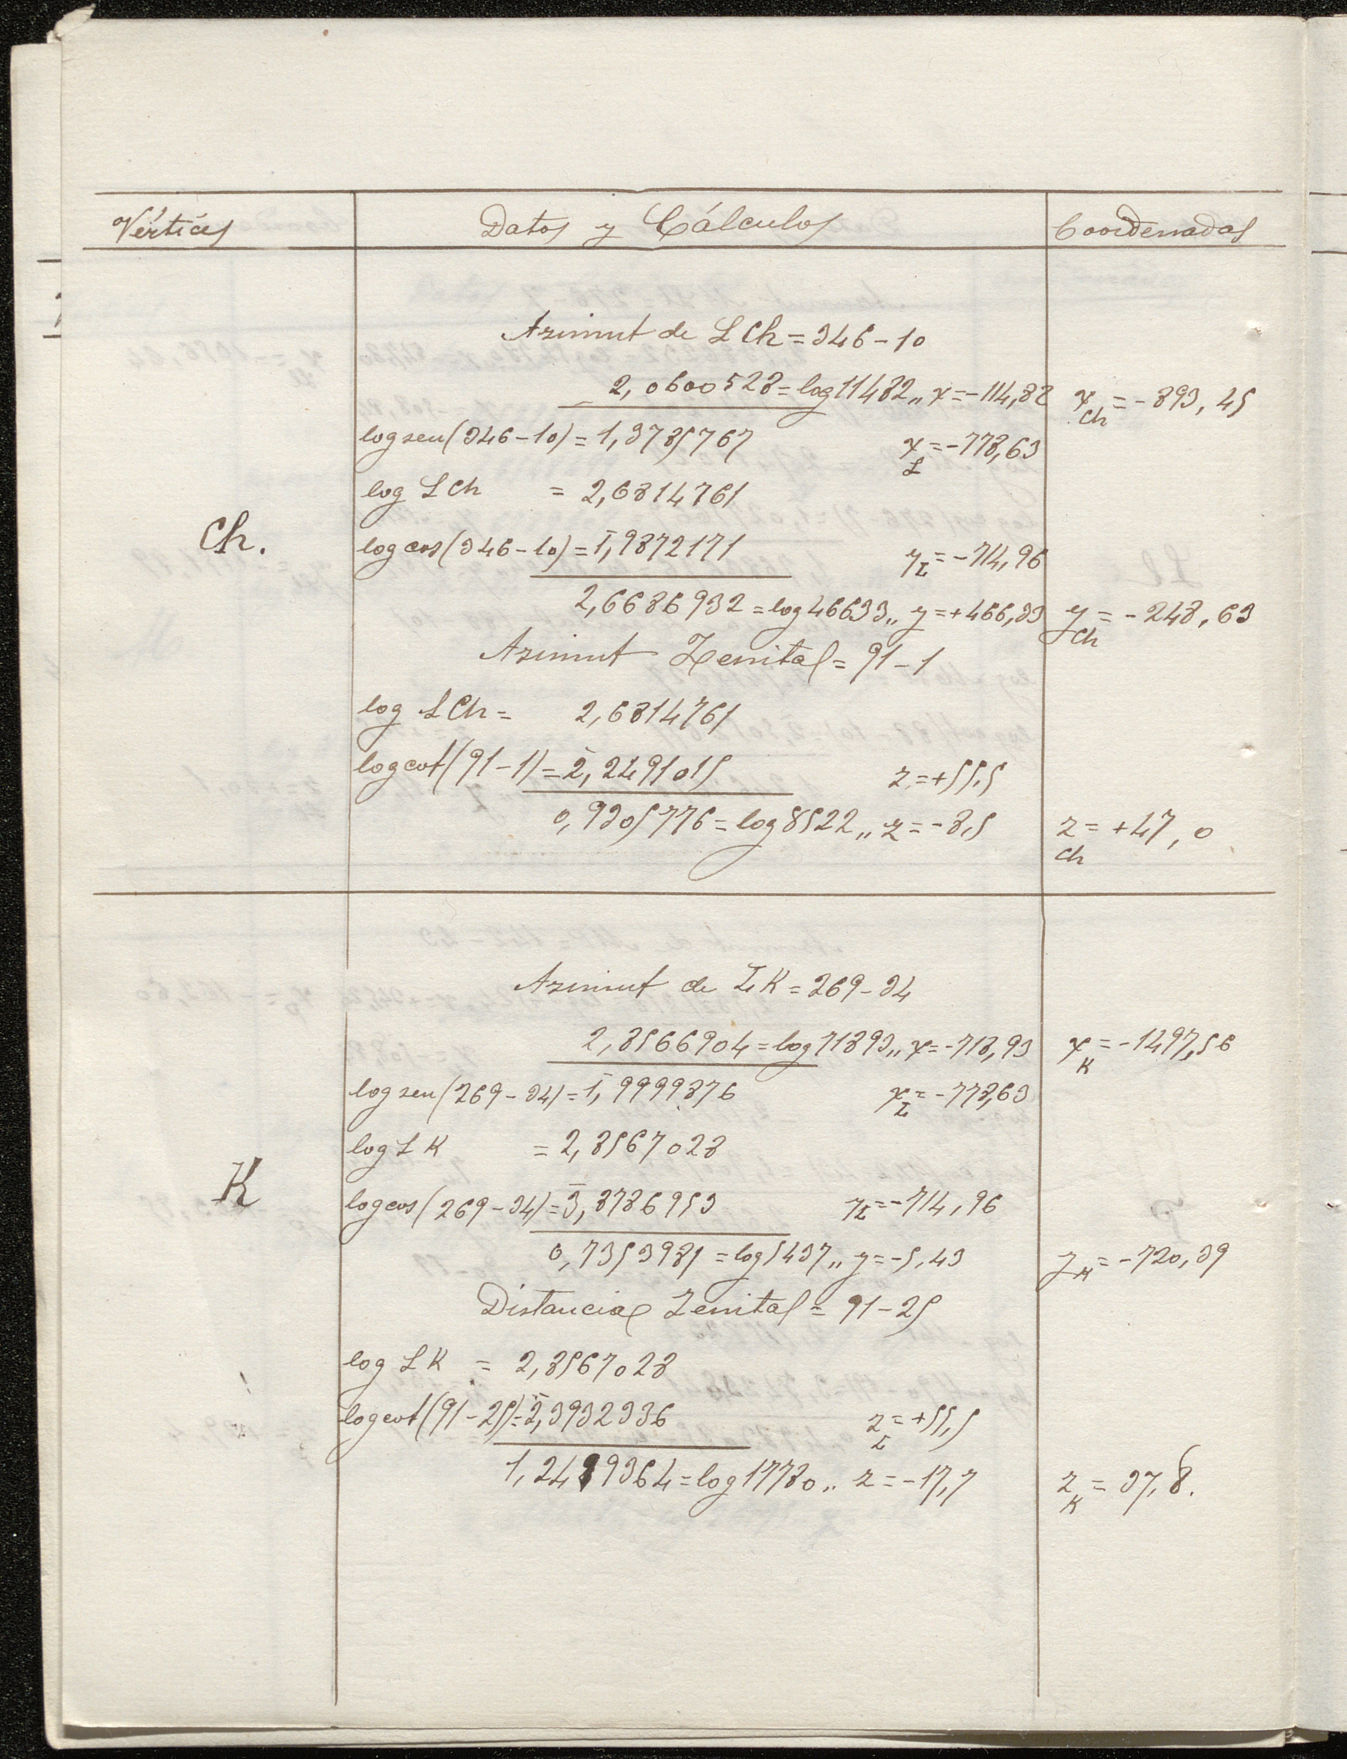 Vértices Datos y Cálculos Coordenadas
Azimut de L Ch = 346-10
2,0600528 = log 11482,, x = -114,82 x Ch = -893,45
log sen (346-10) = 1,3785767 x L = -778,63
log L Ch = 2,6814761
Ch.
log cos (346-10) = 1̄,9872171 y L = -714,96
2,6686932 = log 46633,, y = +466,33 y Ch = -248,63
Azimut Zenital = 91-1
log L Ch = 2,6814761
log cot (91-1) = 2̄,2491015 z = +55,5
0,9305776 = log 8522,, z = -8,5 z Ch = +47,0
Azimut de L K = 269-34
2,8566904 = log 71893,, x = -718,93 x K = -1497,56
log sen (269-34) = 1̄,9999876 x L = -778,63
log L K = 2,8567028
K
log cos (269-34) = 3̄,8786953 y L = -714,96
0,7353981 = log 5437,, y = -5,43 y K = -720,39
Distancia Zenital = 91-25
log L K = 2,8567028
log cot (91-25) = 2̄,3932336 z L = +55,5
1,2499364 = log 17780,, z = -17,7 z K = 37,8.